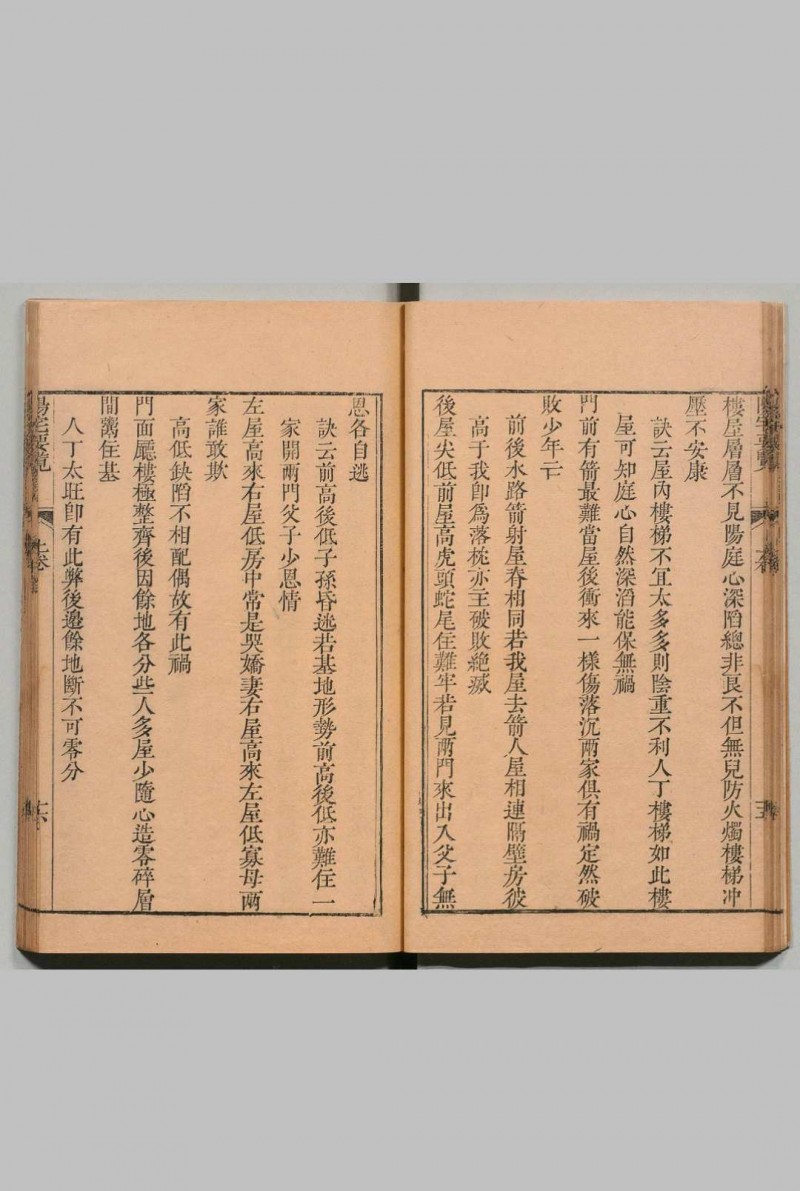 樓屋層層不見陽庭心深陷總非良不但無兒防火燭樓梯冲
壓不安康
訣云屋內樓梯不宜太多多則陰重不利人丁樓梯如此樓
屋可知庭心自然深滔能保無禍
門前有箭最難當屋後衝來一樣傷落沉兩家俱有禍定然破
敗少年亡
前後水路箭射屋脊相同若我屋去箭人屋相連隔壁房彼
高于我卽爲落枕亦主破敗絶滅
後屋尖低前屋高虎頭蛇尾住難牢若見兩門來出入父子無
五
恩各自逃
訣云前高後低子孫昏逃若基地形勢前高後低亦難住一
家開兩門父子少恩情
左屋高來右屋低房中常是哭嬌妻右屋高來左屋低寡母兩
家誰敢欺
高低缺陷不相配偶故有此禍
門面廳樓極整齊後因餘地各分些人多屋少隨心造零碎層
間住基
人丁太旺卽有此弊後邊餘地斷不可零分
陽宅要覽
上卷
六